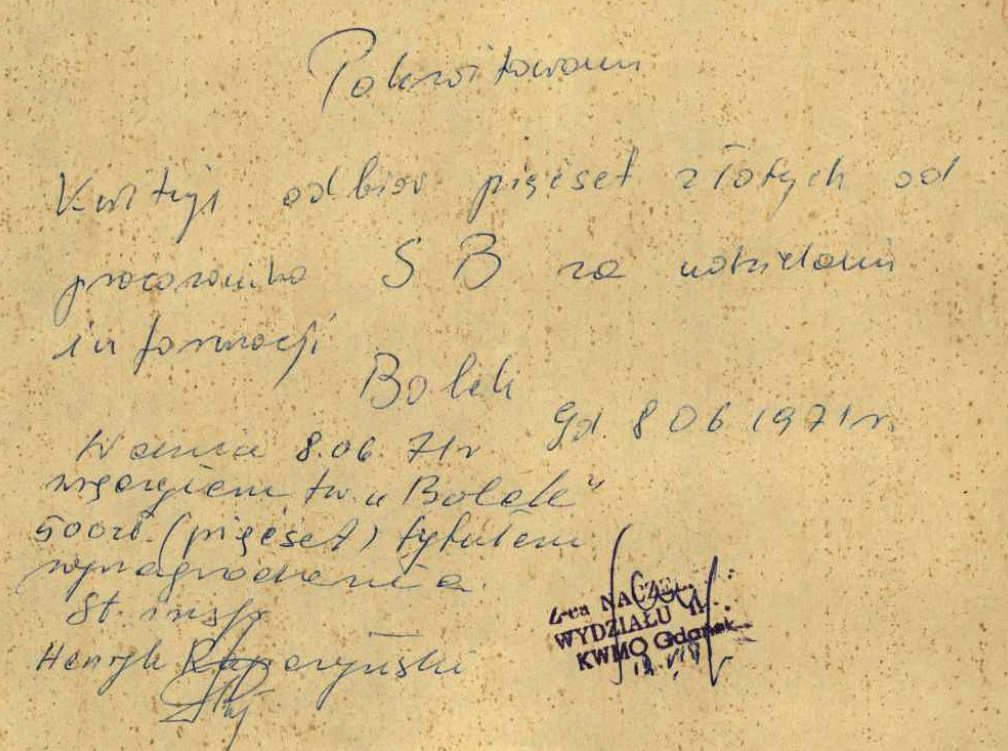 Pokwitowani
Kwituję odbiór pięćset złotych od
pracownika SB za udzielani
informacji
Bolek
Gd 8 06 1971 r.
W dniu 8.06.71r
wręczyłem tw. „Bolek"
500zł. (pięćset) tytułem
wynagrodzenia.
St. insp
Henryk Rapczyński
Z-ca NACZEL.
WYDZIAŁU
KWMO Gdańsk